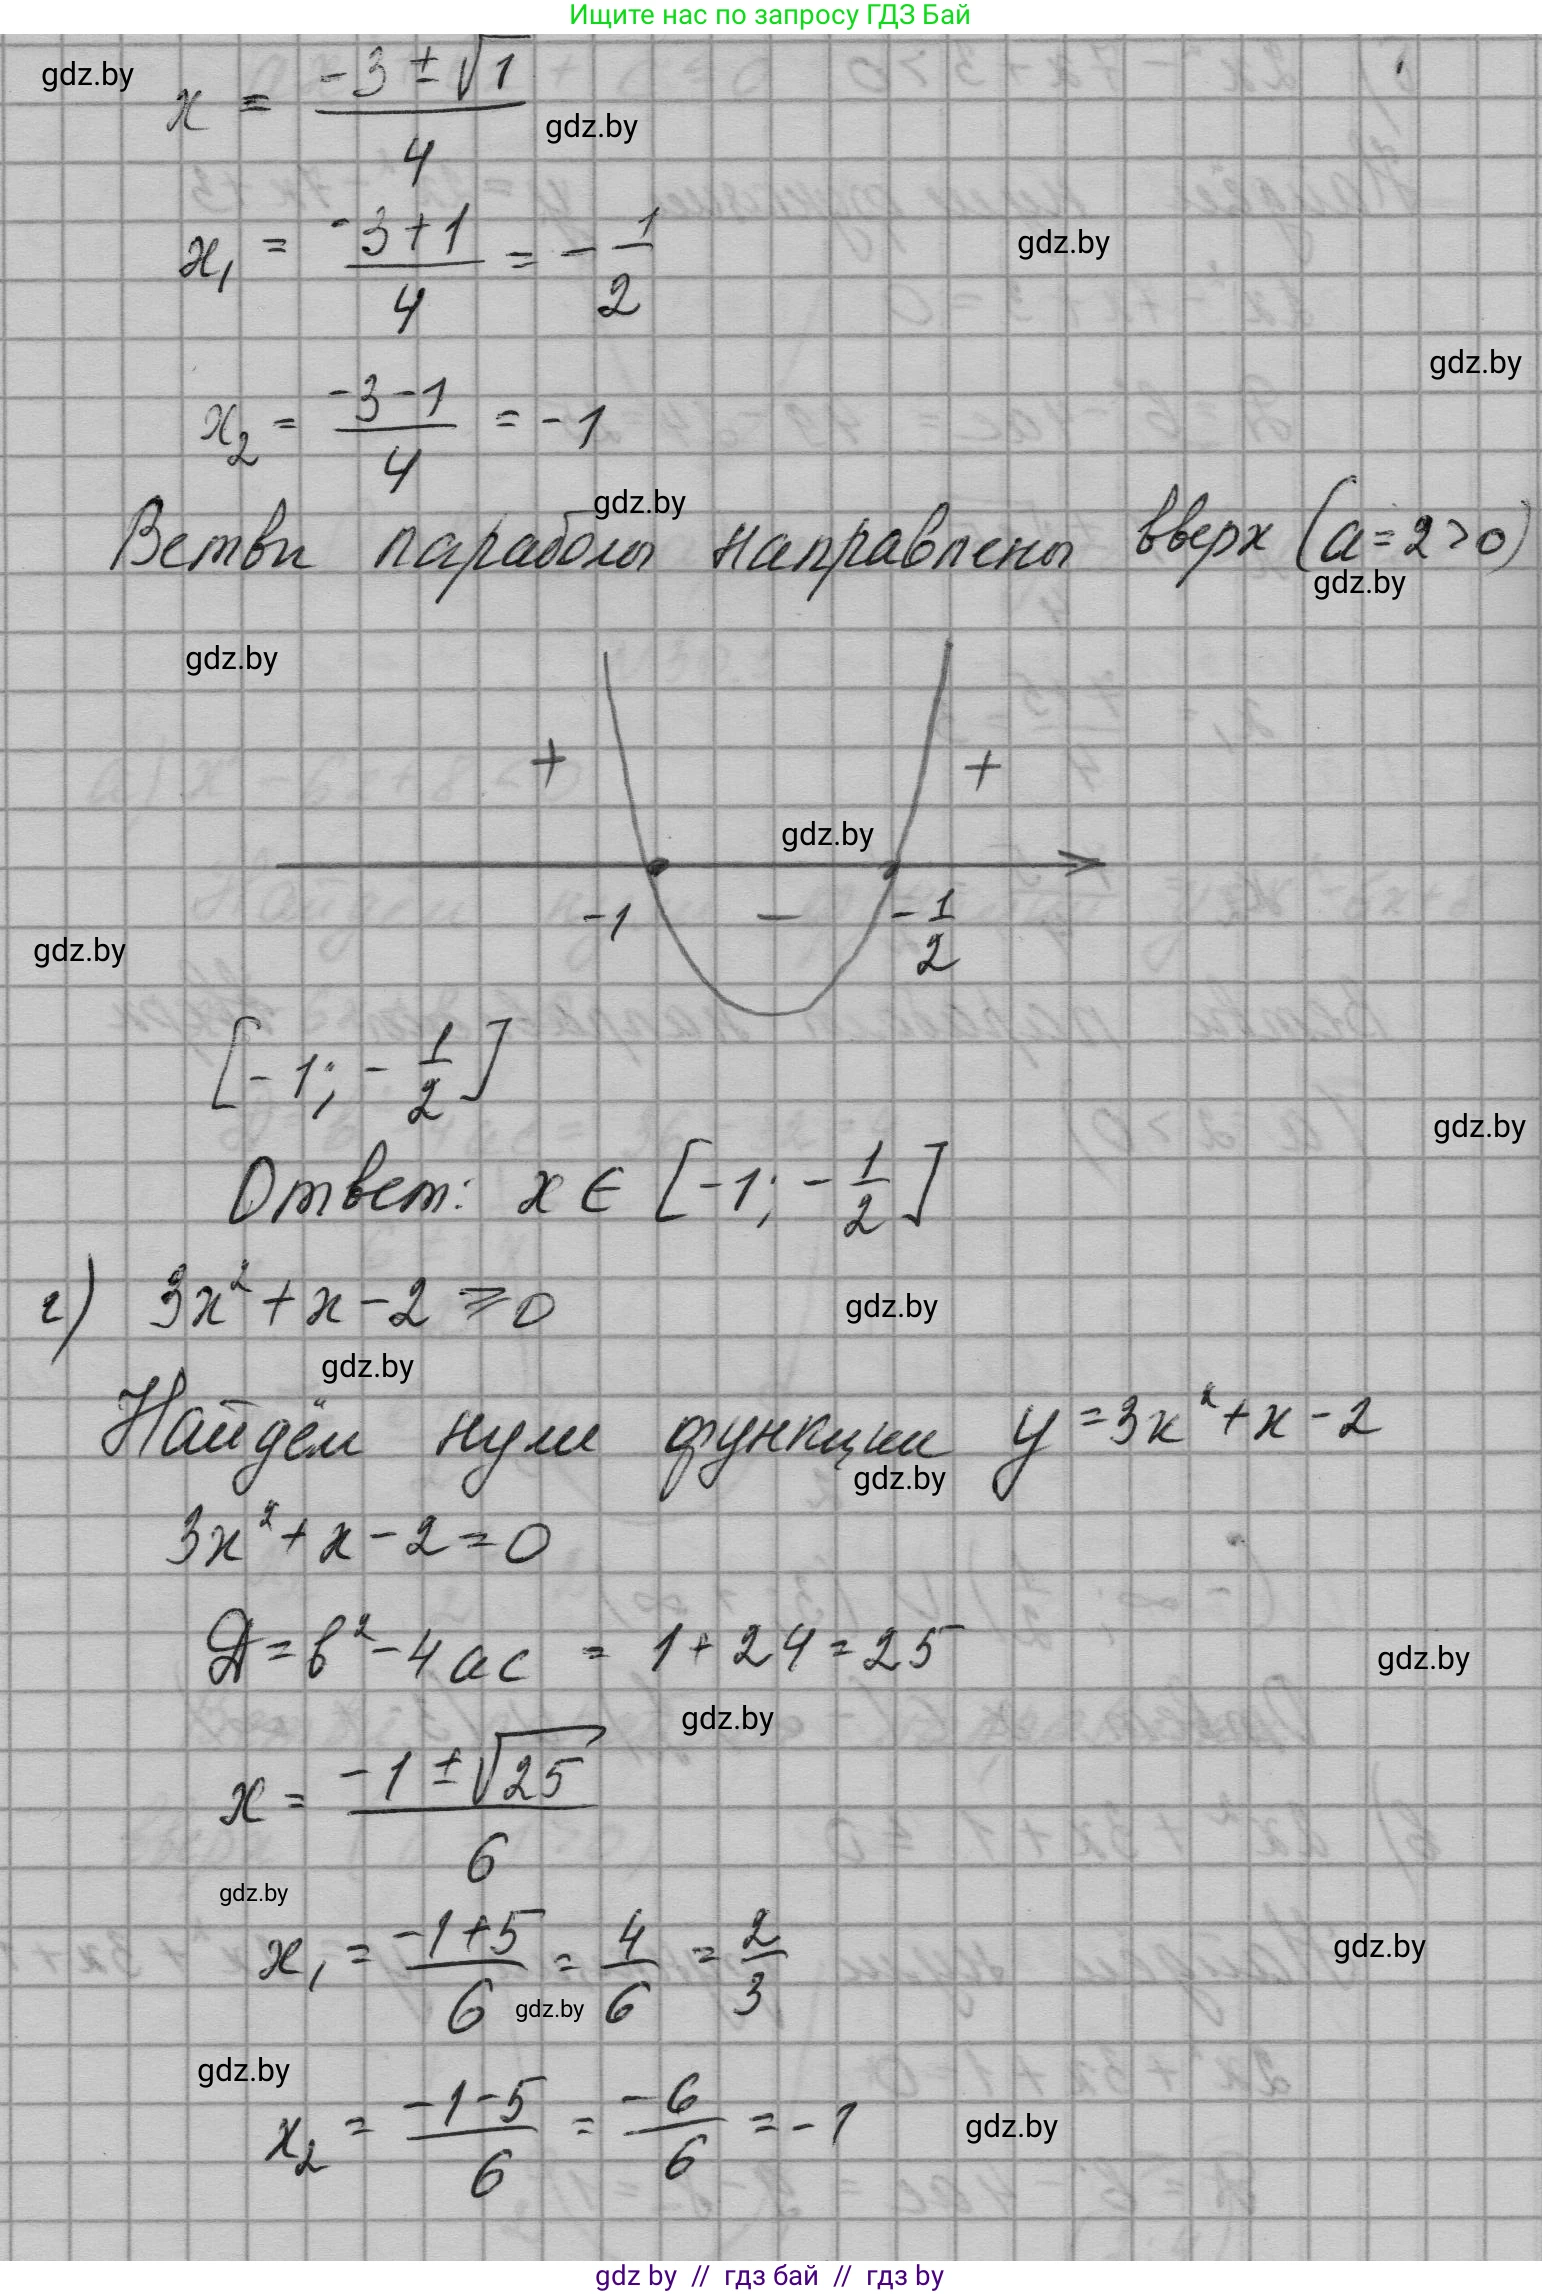 Ищите нас по запросу ГДЗ Бай
gdz.by
x = (-3 ± √1)/4
gdz.by
x₁ = (-3+1)/4 = -1/2
gdz.by
gdz.by
x₂ = (-3-1)/4 = -1
gdz.by
Ветви параболы направлены вверх (a=2>0)
gdz.by
gdz.by
+ +
gdz.by
-1 - -1/2
gdz.by
[-1; -1/2]
gdz.by
Ответ: x ∈ [-1; -1/2]
г) 3x² + x - 2 ⩾ 0
gdz.by
gdz.by
Найдём нули функции y = 3x² + x - 2
gdz.by
3x² + x - 2 = 0
Д = b² - 4ac = 1 + 24 = 25
gdz.by
gdz.by
x = (-1 ± √25)/6
gdz.by
x₁ = (-1+5)/6 = 4/6 = 2/3
gdz.by
gdz.by
gdz.by
x₂ = (-1-5)/6 = -6/6 = -1
gdz.by
gdz by // гдз бай // гдз by